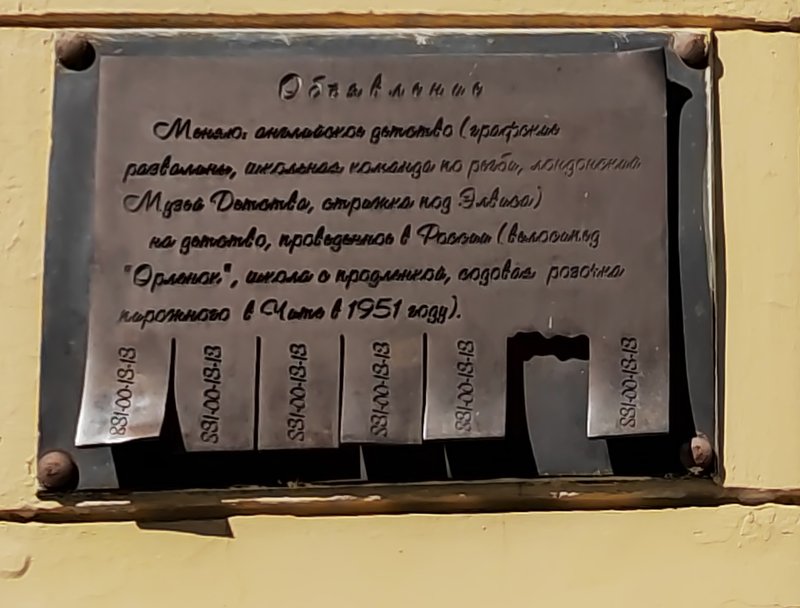 Объявление
Меняю: английское детство (графские
развалины, школьная команда по регби, лондонский
Музей Детства, стрижка под Элвиса)
на детство, проведенное в России (велосипед
"Орленок", школа с продленкой, годовая
пирожного в Чите в 1951 году).
331-00-13-13
331-00-13-13
331-00-13-13
331-00-13-13
331-00-13-13
331-00-13-13